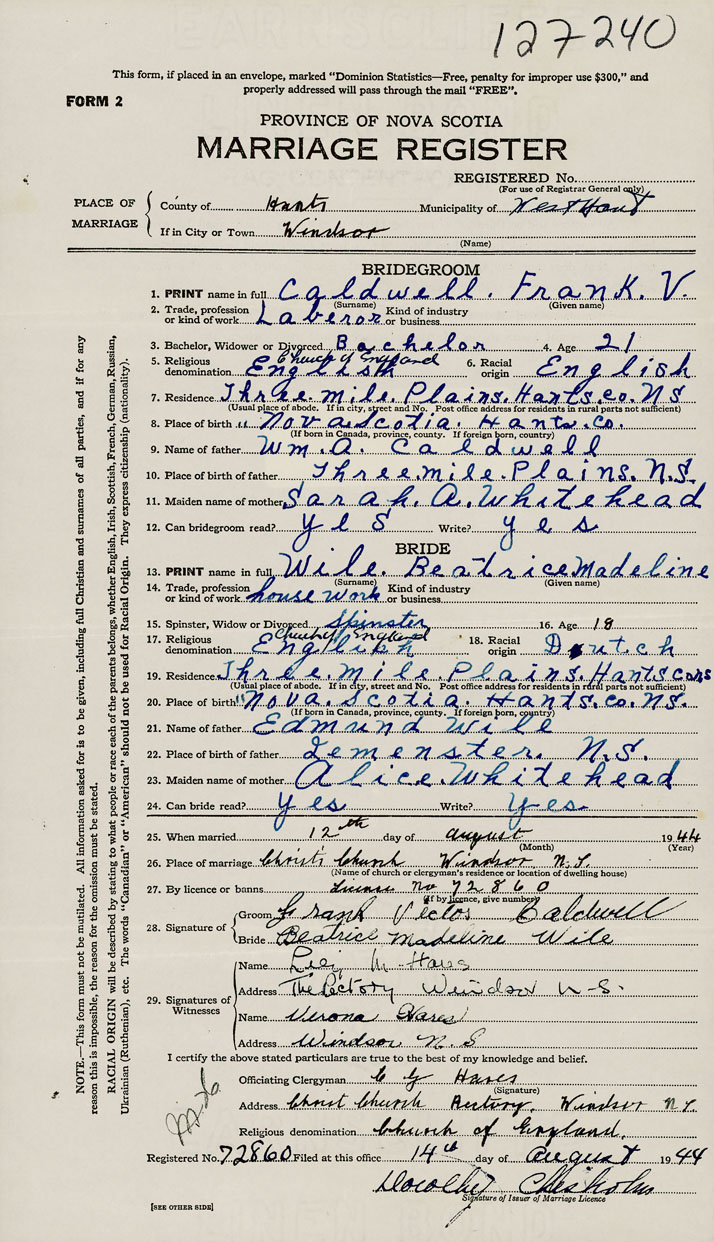 127240
This form, if placed in an envelope, marked "Dominion Statistics—Free, penalty for improper use $300," and
properly addressed will pass through the mail "FREE".
FORM 2
PROVINCE OF NOVA SCOTIA
MARRIAGE REGISTER
REGISTERED No.
(For use of Registrar General only)
PLACE OF MARRIAGE
County of Hants Municipality of West Hant
If in City or Town Windsor
(Name)
BRIDEGROOM
1. PRINT name in full Caldwell. Frank. V.
(Surname) (Given name)
2. Trade, profession or kind of work Laberor Kind of industry or business
3. Bachelor, Widower or Divorced Bachelor 4. Age 21
5. Religious denomination English Church of England 6. Racial origin English
7. Residence Three. mile. Plains. Hants. co. NS
(Usual place of abode. If in city, street and No. Post office address for residents in rural parts not sufficient)
8. Place of birth " Nova Scotia. Hants. Co.
(If born in Canada, province, county. If foreign born, country)
9. Name of father Wm. A. Caldwell
10. Place of birth of father Three mile. Plains. N.S.
11. Maiden name of mother Sarah. A. Whitehead
12. Can bridegroom read? yes Write? yes
BRIDE
13. PRINT name in full Wile. Beatrice Madeline
(Surname) (Given name)
14. Trade, profession or kind of work house work Kind of industry or business
15. Spinster, Widow or Divorced Spinster 16. Age 18
17. Religious denomination English Church of England 18. Racial origin Dutch
19. Residence Three. mile. Plains. Hants co NS
(Usual place of abode. If in city, street and No. Post office address for residents in rural parts not sufficient)
20. Place of birth " Nova. Scotia. Hants. co. NS.
(If born in Canada, province, county. If foreign born, country)
21. Name of father Edmund Wile
22. Place of birth of father Lemenster. N.S.
23. Maiden name of mother Alice. Whitehead
24. Can bride read? Yes Write? Yes.
25. When married 12th day of August 1944
(Month) (Year)
26. Place of marriage Christ Church Windsor N.S.
(Name of church or clergyman's residence or location of dwelling house)
27. By licence or banns License no 72860
(If by licence, give number)
28. Signature of
Groom Frank Victor Caldwell
Bride Beatrice Madeline Wile
29. Signatures of Witnesses
Name
Address The Rectory Windsor N-S.
Name Verona Hares
Address Windsor N.S
I certify the above stated particulars are true to the best of my knowledge and belief.
Officiating Clergyman C G Hares
(Signature)
Address Christ Church Rectory, Windsor N.S.
Religious denomination Church of England.
Registered No. 72860 Filed at this office 14th day of August 1944
Dorothy Chisholm
Signature of Issuer of Marriage Licence
[SEE OTHER SIDE]
NOTE.—This form must not be mutilated. All information asked for is to be given, including full Christian and surnames of all parties, and if for any
reason this is impossible, the reason for the omission must be stated.
RACIAL ORIGIN will be described by stating to what people or race each of the parents belongs, whether English, Irish, Scottish, French, German, Russian,
Ukrainian (Ruthenian), etc. The words "Canadian" or "American" should not be used for Racial Origin. They express citizenship (nationality).